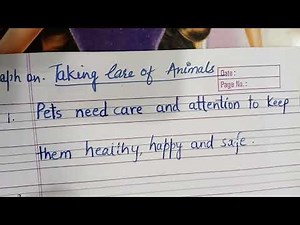 aph on. Taking Care of Animals
Date:
Page No.:
1. Pets need care and attention to keep
them healthy, happy and safe.